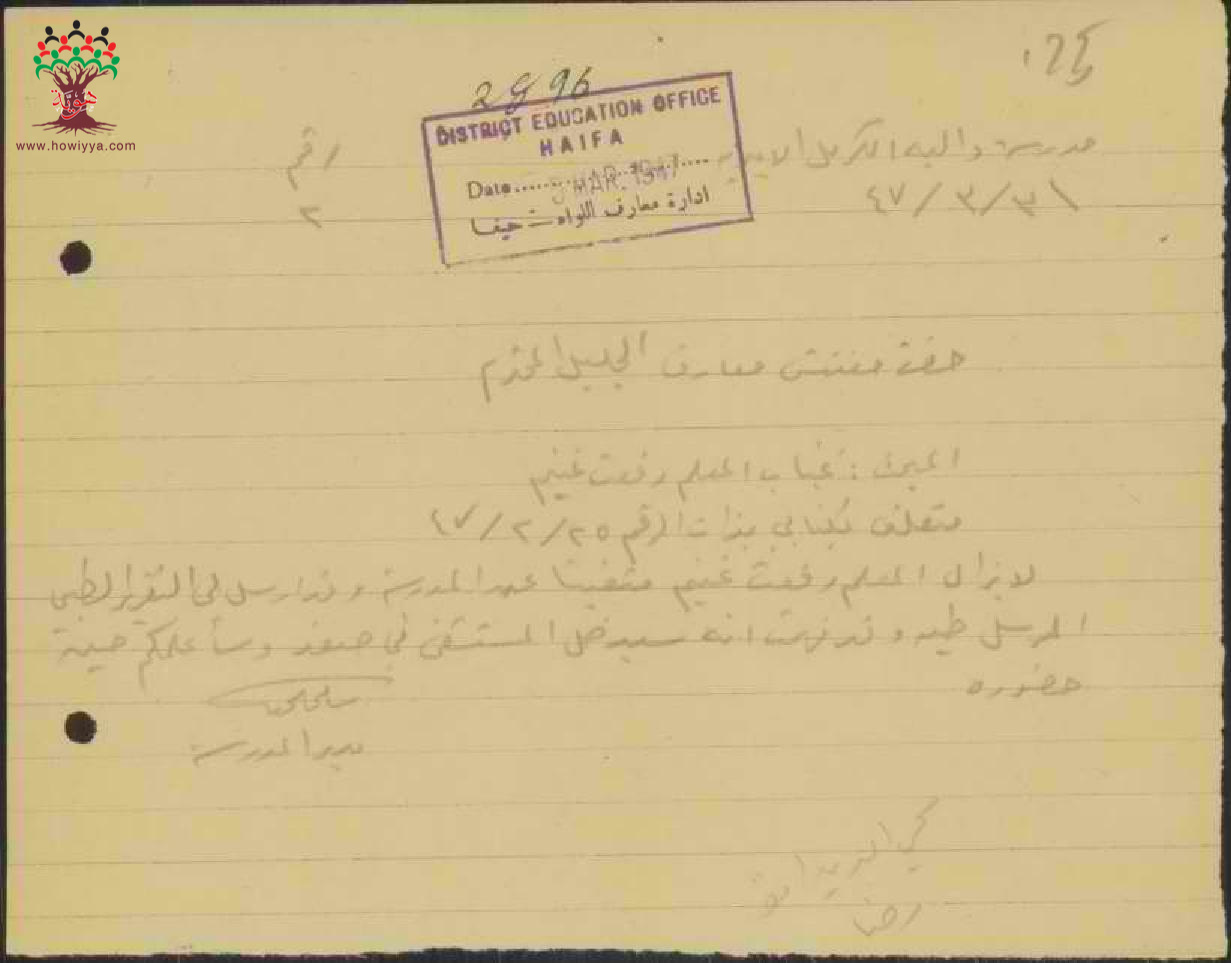 هوية
www.howiyya.com
2896
DISTRICT EDUCATION OFFICE
HAIFA
Date MAR. 1947
ادارة معارف اللواء - حيفا
مدرسة دالية الكرمل الاميرية
رقم
٢
٤٧/٣/٣١
حضرة مفتش معارف الجليل المحترم
المبحث: غياب المعلم رفعت غنيم
متعلق بكتابي بذات الرقم ٢٥/٢/٤٧
لا يزال المعلم رفعت غنيم متغيبا عن المدرسة وقد ارسل لي التقرير الطبي
المرسل طيه وقد فهمت انه سيدخل المستشفى في صفد وسأعلمكم حين
حضوره
مدير المدرسة